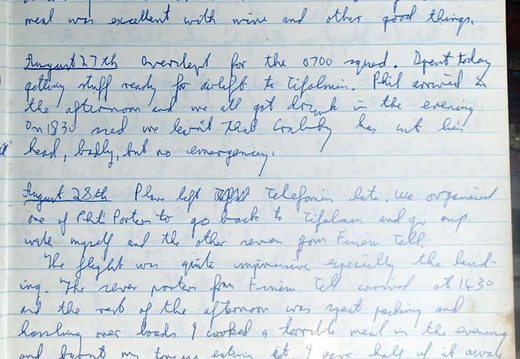 meal was excellent with wine and other good things.
August 27th Overslept for the 0700 sqed. Spent today
getting stuff ready for airlift to Tifalmin. Phil arrived in
the afternoon and we all got drunk in the evening
On 1830 sced we learnt that has cut his
head, badly, but no emergency.
August 28th Plane left Telefomin late. We organised
one of Phil's Porters to go back to Tifalmin and go up
with myself and the other seven from Finem Tell.
The flight was quite impressive especially the land-
ing. The seven porters from Finem Tell arrived at 1430
and the rest of the afternoon was spent packing and
hassling over loads. I cooked a terrible meal in the evening
and burnt my tongue eating it. I gave half of it away